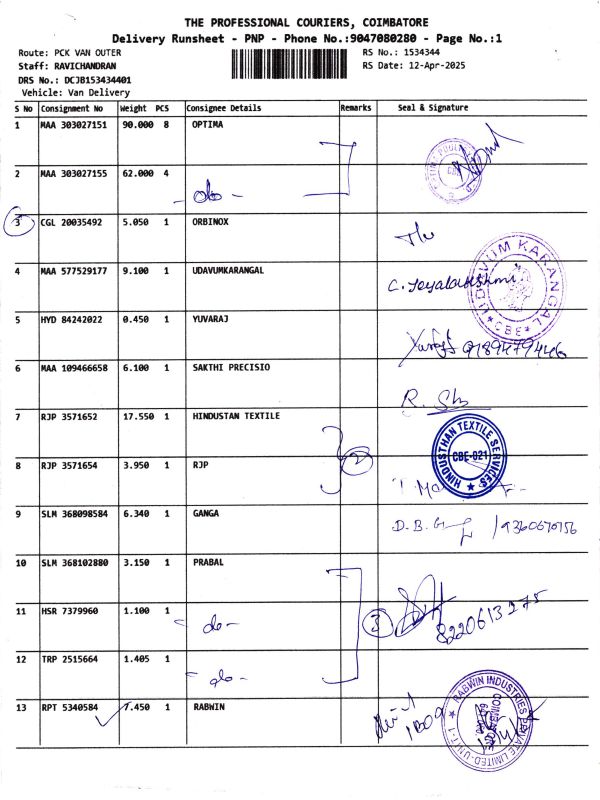 THE PROFESSIONAL COURIERS, COIMBATORE
Delivery Runsheet - PNP - Phone No.:9047080280 - Page No.:1
Route: PCK VAN OUTER RS No.: 1534344
Staff: RAVICHANDRAN RS Date: 12-Apr-2025
DRS No.: DCJB153434401
Vehicle: Van Delivery
S No Consignment No Weight PCS Consignee Details Remarks Seal & Signature
1 MAA 303027151 90.000 8 OPTIMA
2 MAA 303027155 62.000 4
- do -
3 CGL 20035492 5.050 1 ORBINOX
4 MAA 577529177 9.100 1 UDAVUMKARANGAL
C. Jeyalakshmi
UDAVUM KARANGAL * CBE *
5 HYD 84242022 0.450 1 YUVARAJ
Yuvraj 9189479446
6 MAA 109466658 6.100 1 SAKTHI PRECISIO
R.
7 RJP 3571652 17.550 1 HINDUSTAN TEXTILE
HINDUSTHAN TEXTILE SERVICES
CBE-021
2
8 RJP 3571654 3.950 1 RJP
9 SLM 368098584 6.340 1 GANGA
D. B. G
10 SLM 368102880 3.150 1 PRABAL
11 HSR 7379960 1.100 1
- do -
3
8220613275
12 TRP 2515664 1.405 1
- do -
13 RPT 5340584 7.450 1 RABWIN
RABWIN INDUSTRIES PRIVATE LIMITED-UNIT-1